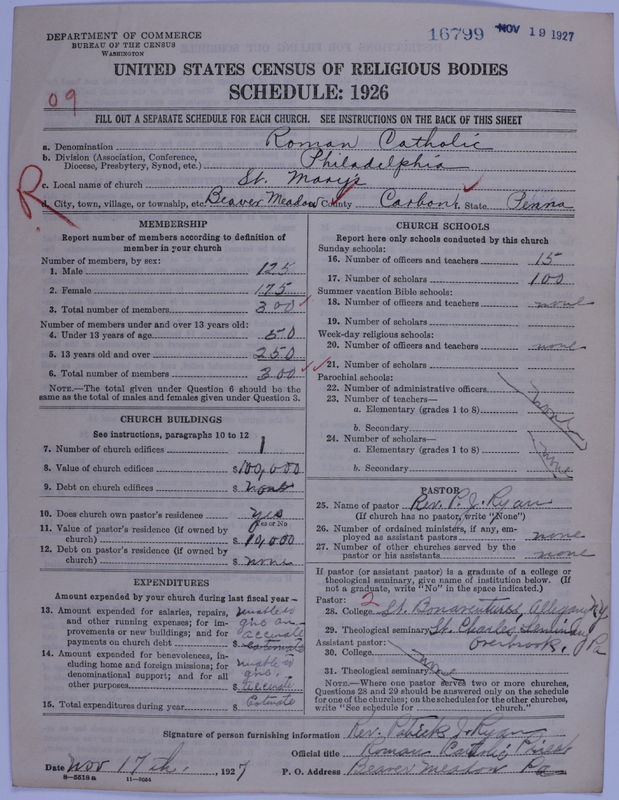 DEPARTMENT OF COMMERCE
BUREAU OF THE CENSUS
WASHINGTON
16799 NOV 19 1927
UNITED STATES CENSUS OF RELIGIOUS BODIES
SCHEDULE: 1926
09
FILL OUT A SEPARATE SCHEDULE FOR EACH CHURCH. SEE INSTRUCTIONS ON THE BACK OF THIS SHEET
a. Denomination Roman Catholic
b. Division (Association, Conference, Diocese, Presbytery, Synod, etc.) Philadelphia
c. Local name of church St. Mary's
R
d. City, town, village, or township, etc. Beaver Meadow County Carbon State Penna
MEMBERSHIP
Report number of members according to definition of member in your church
Number of members, by sex:
1. Male 125
2. Female 175
3. Total number of members 300
Number of members under and over 13 years old:
4. Under 13 years of age 50
5. 13 years old and over 250
6. Total number of members 300
NOTE.—The total given under Question 6 should be the same as the total of males and females given under Question 3.
CHURCH BUILDINGS
See instructions, paragraphs 10 to 12
7. Number of church edifices 1
8. Value of church edifices $100,000
9. Debt on church edifices $ none
10. Does church own pastor's residence? yes
Yes or No
11. Value of pastor's residence (if owned by church) $
12. Debt on pastor's residence (if owned by church) $ none
EXPENDITURES
Amount expended by your church during last fiscal year—
13. Amount expended for salaries, repairs, and other running expenses; for improvements or new buildings; and for payments on church debt $ unable to give an accurate estimate
14. Amount expended for benevolences, including home and foreign missions; for denominational support; and for all other purposes $ unable to give accurate
15. Total expenditures during year $ Estimate
CHURCH SCHOOLS
Report here only schools conducted by this church
Sunday schools:
16. Number of officers and teachers 15
17. Number of scholars 100
Summer vacation Bible schools:
18. Number of officers and teachers none
19. Number of scholars
Week-day religious schools:
20. Number of officers and teachers none
21. Number of scholars
Parochial schools:
22. Number of administrative officers
23. Number of teachers—
a. Elementary (grades 1 to 8) none
b. Secondary
24. Number of scholars—
a. Elementary (grades 1 to 8)
b. Secondary none
PASTOR
25. Name of pastor Rev. P. J. Ryan
(If church has no pastor, write "None")
26. Number of ordained ministers, if any, employed as assistant pastors none
27. Number of other churches served by the pastor or his assistants none
If pastor (or assistant pastor) is a graduate of a college or theological seminary, give name of institution below. (If not a graduate, write "No" in the space indicated.)
Pastor: 2
28. College St. Bonaventures, Allegany N.Y.
29. Theological seminary St. Charles Seminary Overbrook, Pa
Assistant pastor:
30. College
31. Theological seminary none
NOTE.—Where one pastor serves two or more churches, Questions 28 and 29 should be answered only on the schedule for one of the churches; on the schedules for the other churches, write "See schedule for church."
Signature of person furnishing information Rev. Patrick J. Ryan
Official title Roman Catholic Priest
Date Nov 17th, 1927 P. O. Address Beaver Meadow Pa
8-5518 a 11-9684